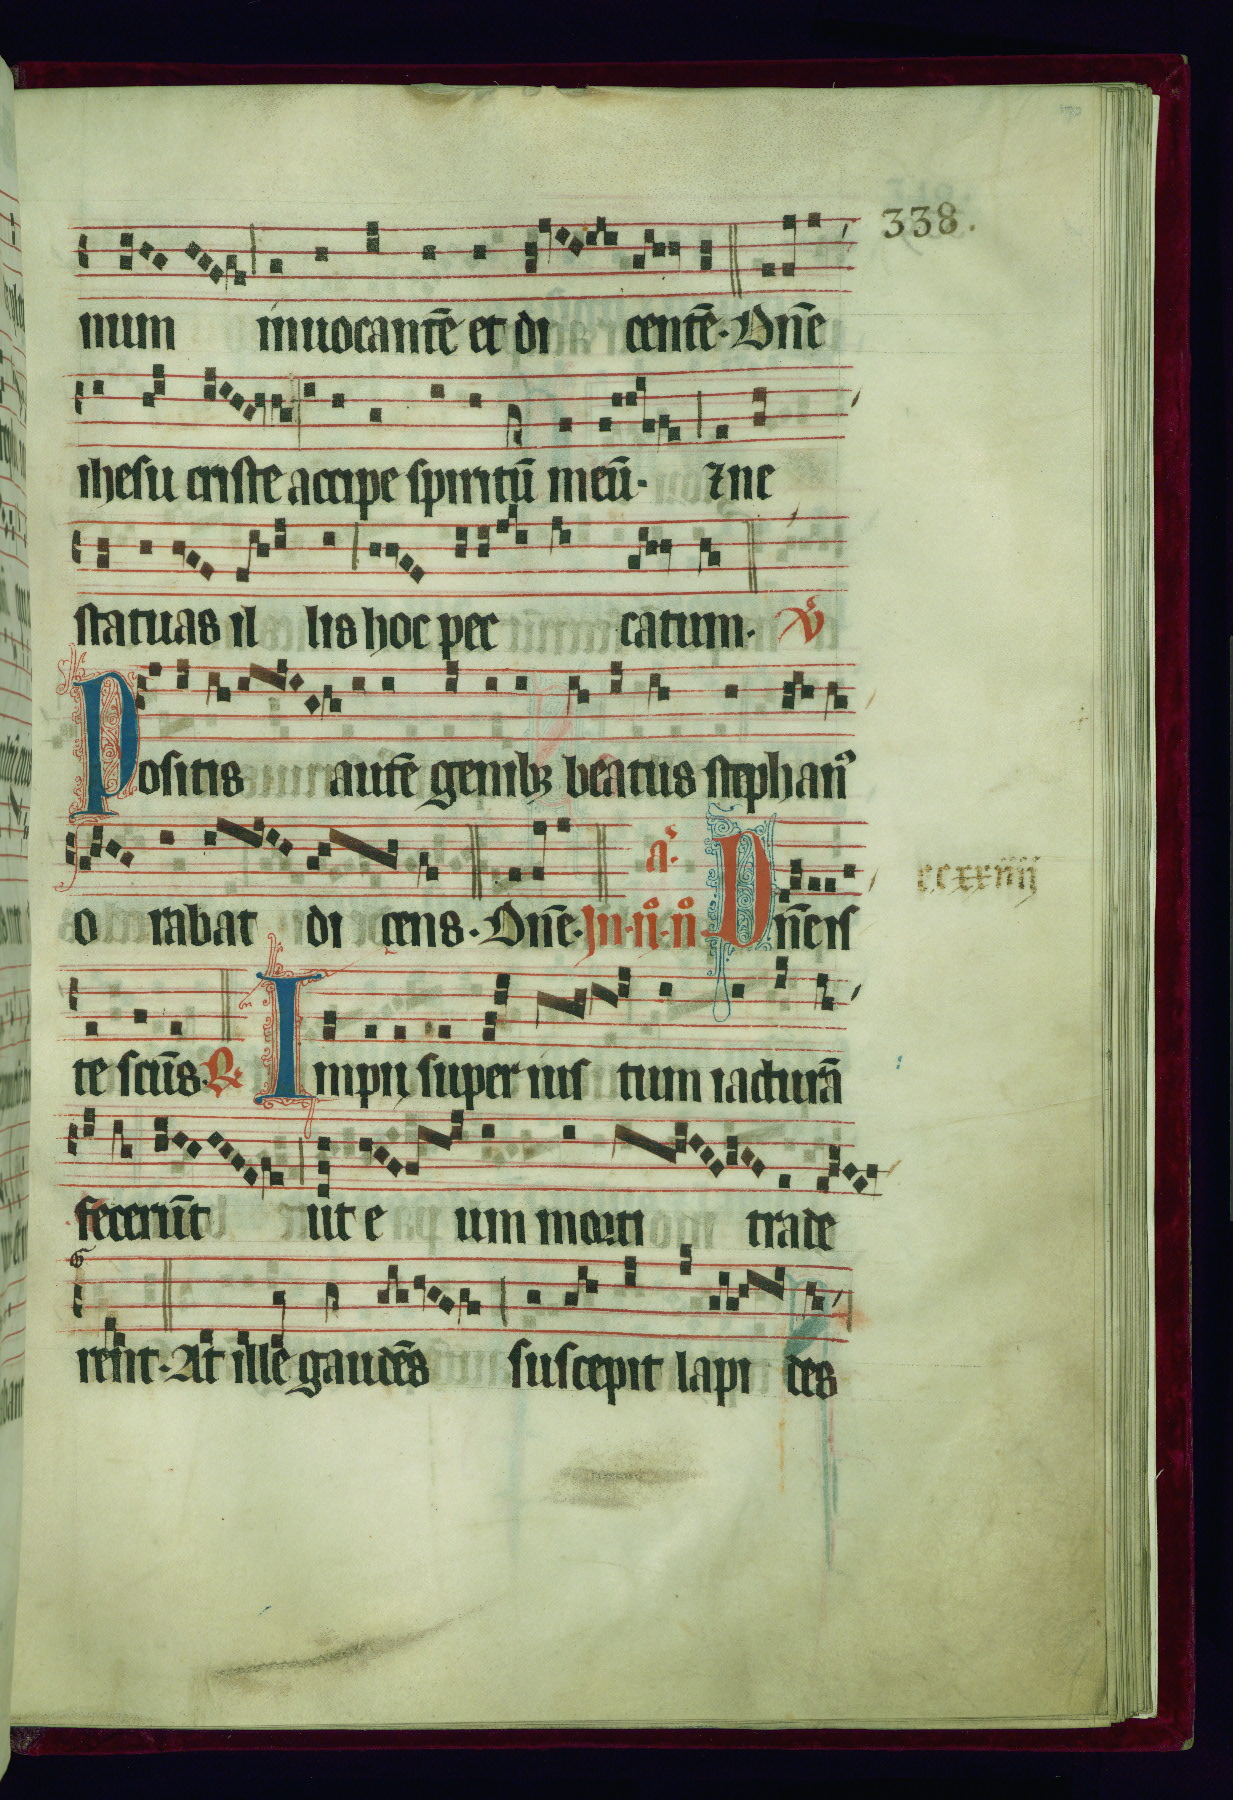 338.
num inuocantē et di centē. Dn̄e
ihesu criste accipe spiritū meū. ⁊ ne
statuas il lis hoc pec catum. V̊
Positis autē genibꝫ beatus stephanꝰ
o rabat di cens. Dn̄e. Jn. ıı̊. n̊ a̾. Dn̄e is
ccxxiiij
te scūs. ℟ Impij super ius tum iacturā
fecerūt ut e um morti trade
rēnt. At ille gaudēs suscepit lapi des